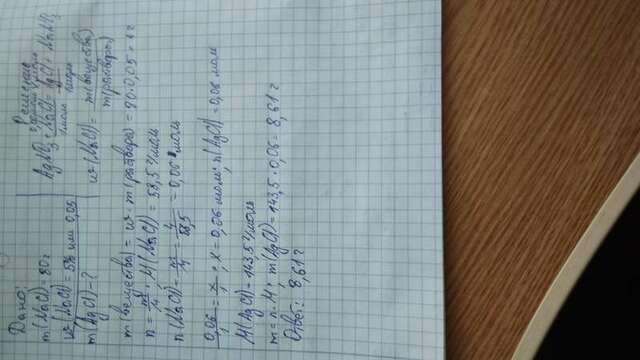 Дано:
m(NaCl) = 80г
w(NaCl) = 5% или 0,05
m(AgCl) - ?
Решение
AgNO₃ + NaCl = AgCl + NaNO₃
1моль
w(NaCl) = m(вещества) / m(раствора)
m(вещества) = w · m(раствора) = 80·0,05 = 4г
n = m/M; M(NaCl) = 58,5 г/моль
n(NaCl) = m/M = 4/58,5 = 0,06 моль
0,06/1 = x/1; x = 0,06 моль; n(AgCl) = 0,06 моль
M(AgCl) = 143,5 г/моль
m = n·M; m(AgCl) = 143,5 · 0,06 = 8,61 г
Ответ: 8,61 г